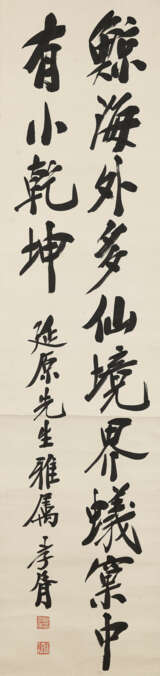 鯨海外多仙境界蟻窠中
有小乾坤
延原先生雅属 季脊